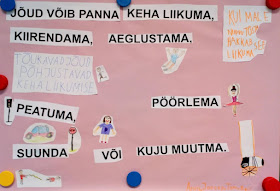 JÕUD VÕIB PANNA KEHA LIIKUMA,
KIIRENDAMA, AEGLUSTAMA.
TÕUKAVAD JÕUD
PÕHJUSTAVAD
KEHA LIIKUMISE
KUI MA
LIIKUMA
PEATUMA, PÖÖRLEMA
SUUNDA VÕI KUJU MUUTMA.